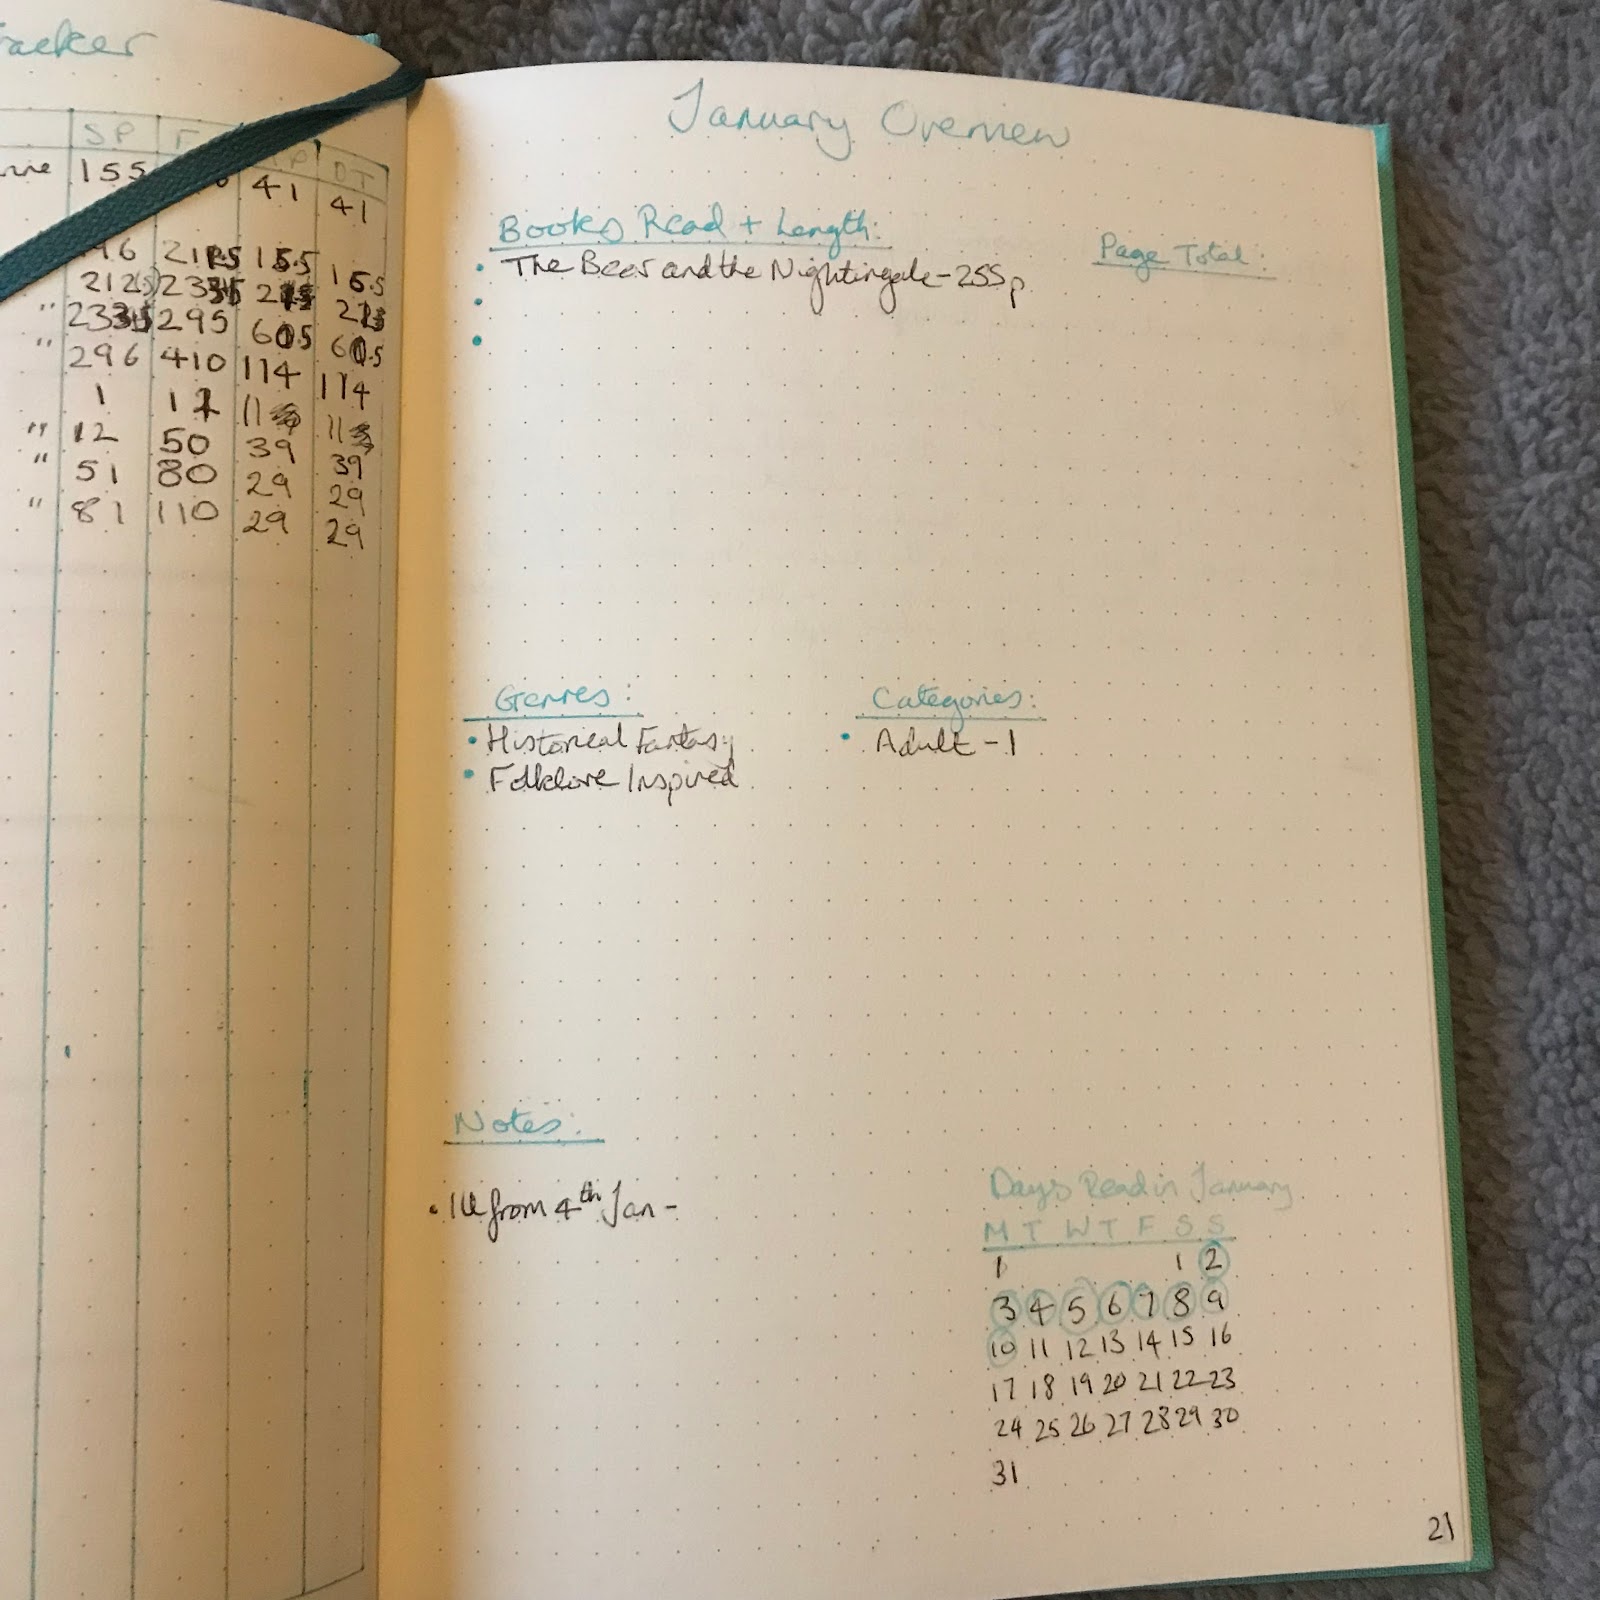 acker
SP F P DT
155 41 41
96 21 15.5 15.5
212(.5)
" 295
" 296 410 114 114
1 11
" 12 50 39 39
" 51 80 29 29
" 81 110 29 29
January Overview
Books Read + Length:
Page Total:
• The Bear and the Nightingale - 255p
•
•
Genres:
Categories:
• Historical Fantasy
• Adult - 1
• Folklore Inspired
Notes:
• Ill from 4th Jan -
Days Read in January
M T W T F S S
1 1 2
3 4 5 6 7 8 9
10 11 12 13 14 15 16
17 18 19 20 21 22 23
24 25 26 27 28 29 30
31
21